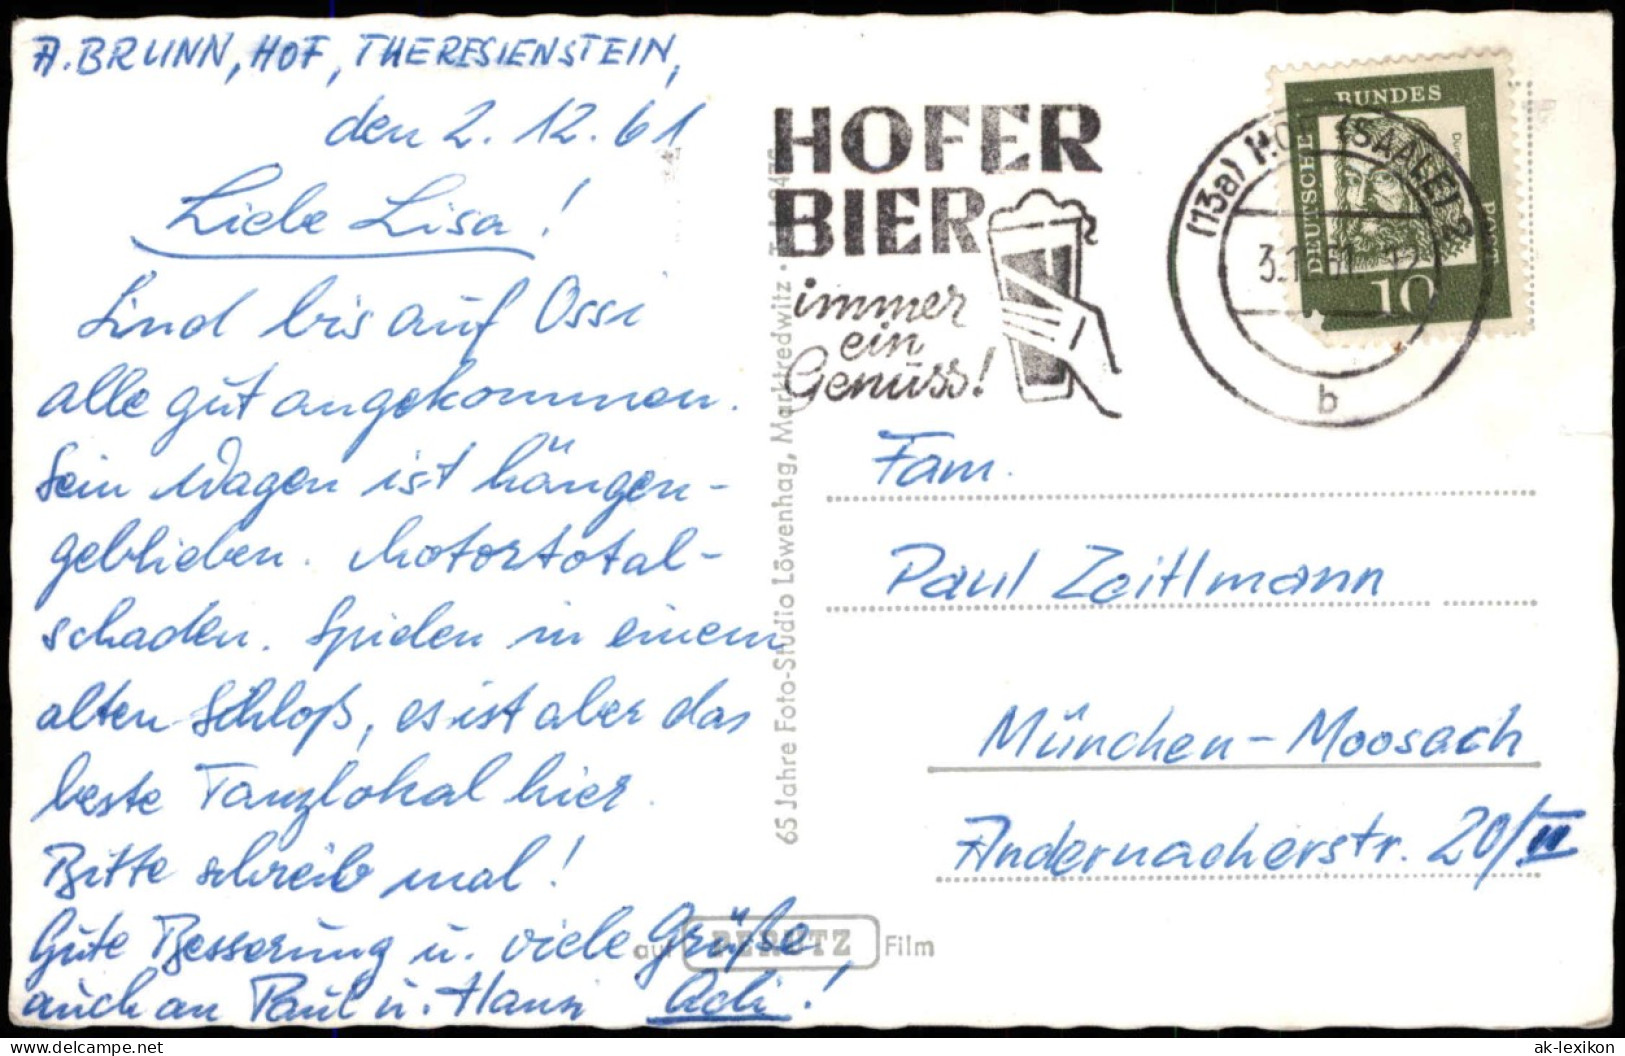 A. BRUNN, HOF, THERESIENSTEIN,
den 2. 12. 61
Liebe Lisa!
Sind bis auf Ossi
alle gut angekommen.
Sein Wagen ist hängen-
geblieben. Motortotal-
schaden. Spielen in einem
alten Schloß, es ist aber das
beste Tanzlokal hier.
Bitte schreib mal!
Gute Besserung u. viele Grüße,
auch an Paul u. Hansi Adi!
65 Jahre Foto-Studio Löwenhag, Marktredwitz
auf PERUTZ Film
HOFER
BIER
immer
ein
Genuss!
(13a) HOF (SAALE) 2
3.12.61
b
DEUTSCHE BUNDESPOST
Dürer
10
Fam.
Paul Zeitlmann
München-Moosach
Andernacherstr. 20/II
delcampe.net
ak-lexikon